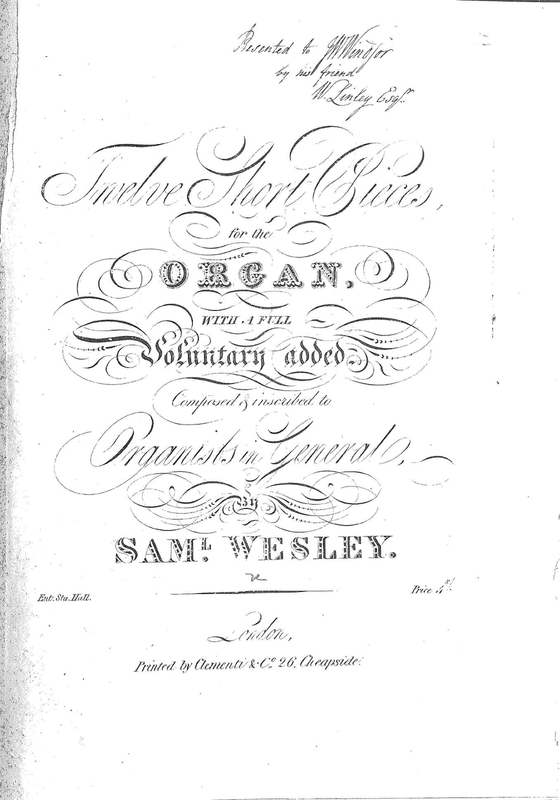 Presented to J W Windsor
by his friend
W. Linley Esqr.
Twelve Short Pieces,
for the
ORGAN,
WITH A FULL
Voluntary added.
Composed & inscribed to
Organists in General,
BY
SAML. WESLEY.
Ent. Sta. Hall.
Price 4s/.
London,
Printed by Clementi & Co. 26, Cheapside.